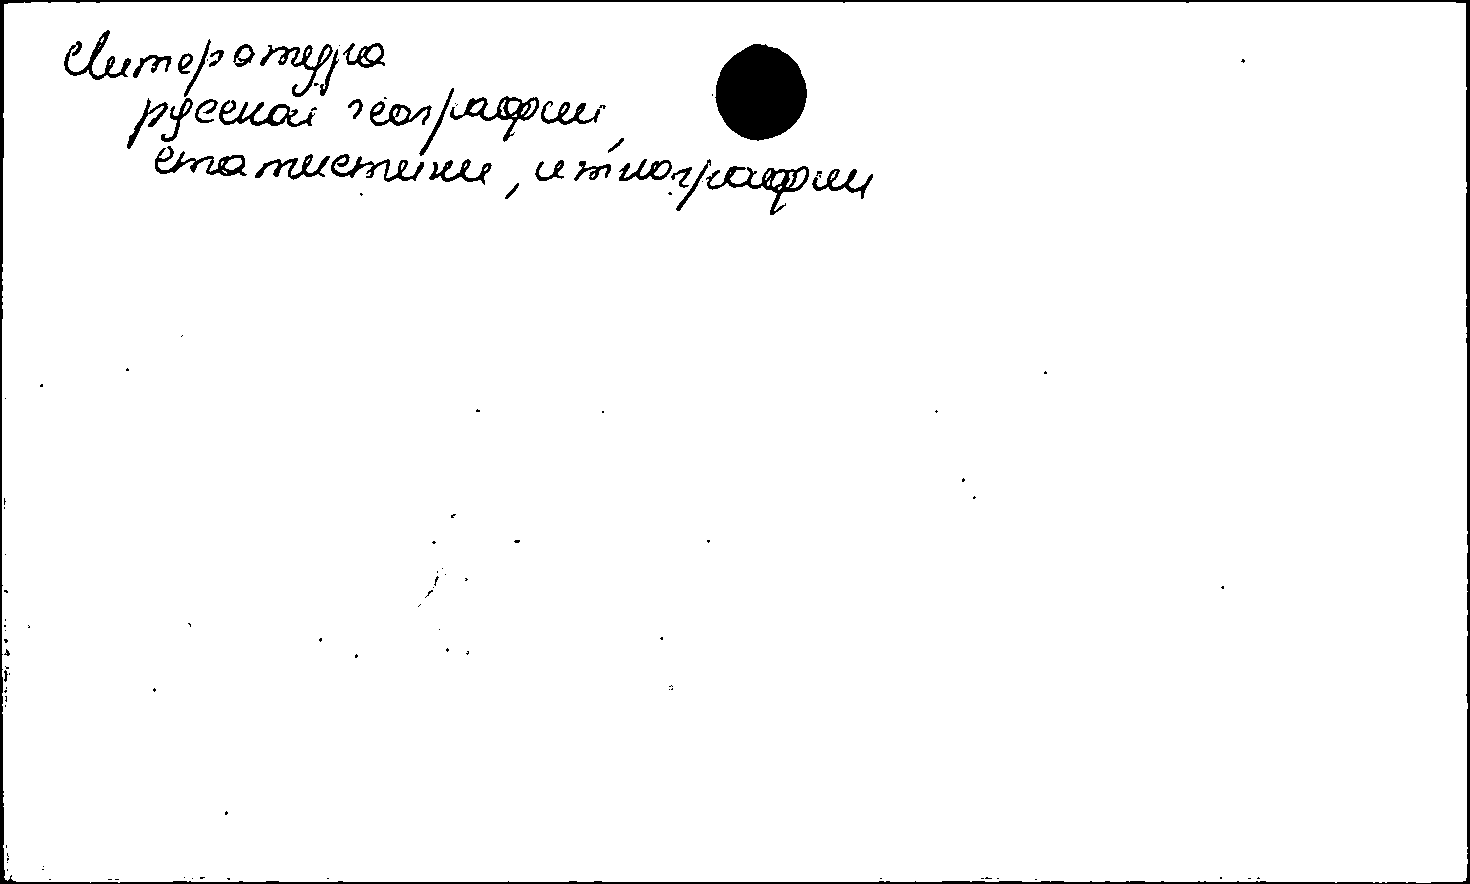 Литература
русской географии,
статистики, итнографии